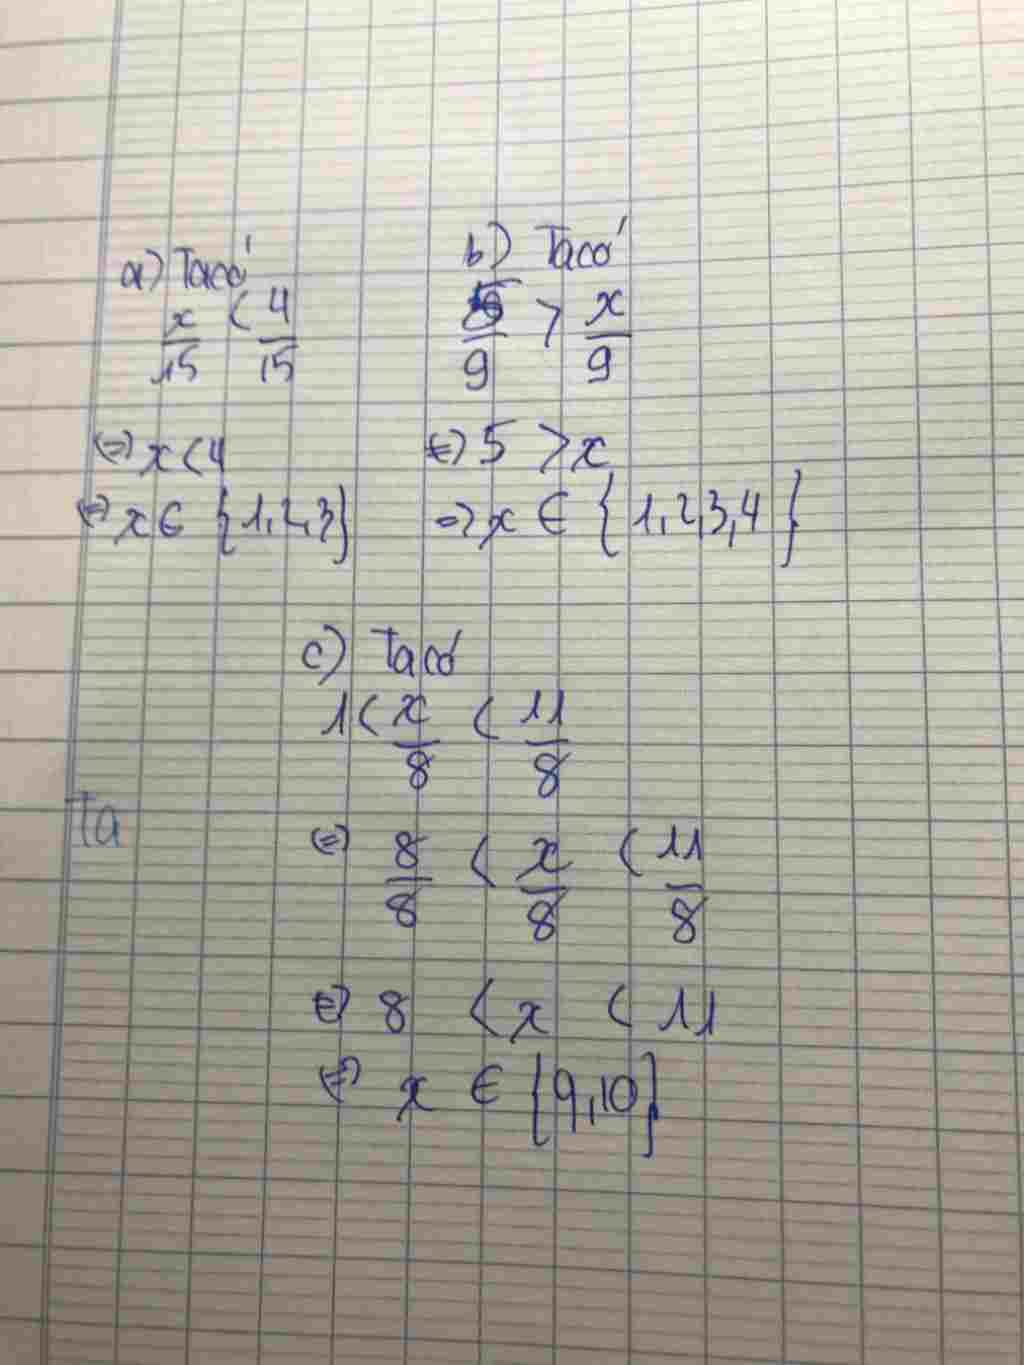 a) Ta có
x/15 < 4/15
⇔ x < 4
⇔ x ∈ {1,2,3}
b) Ta có
5/9 > x/9
⇔ 5 > x
⇒ x ∈ {1,2,3,4}
c) Ta có
1 < x/8 < 11/8
⇔ 8/8 < x/8 < 11/8
⇔ 8 < x < 11
⇔ x ∈ {9,10}
Ta